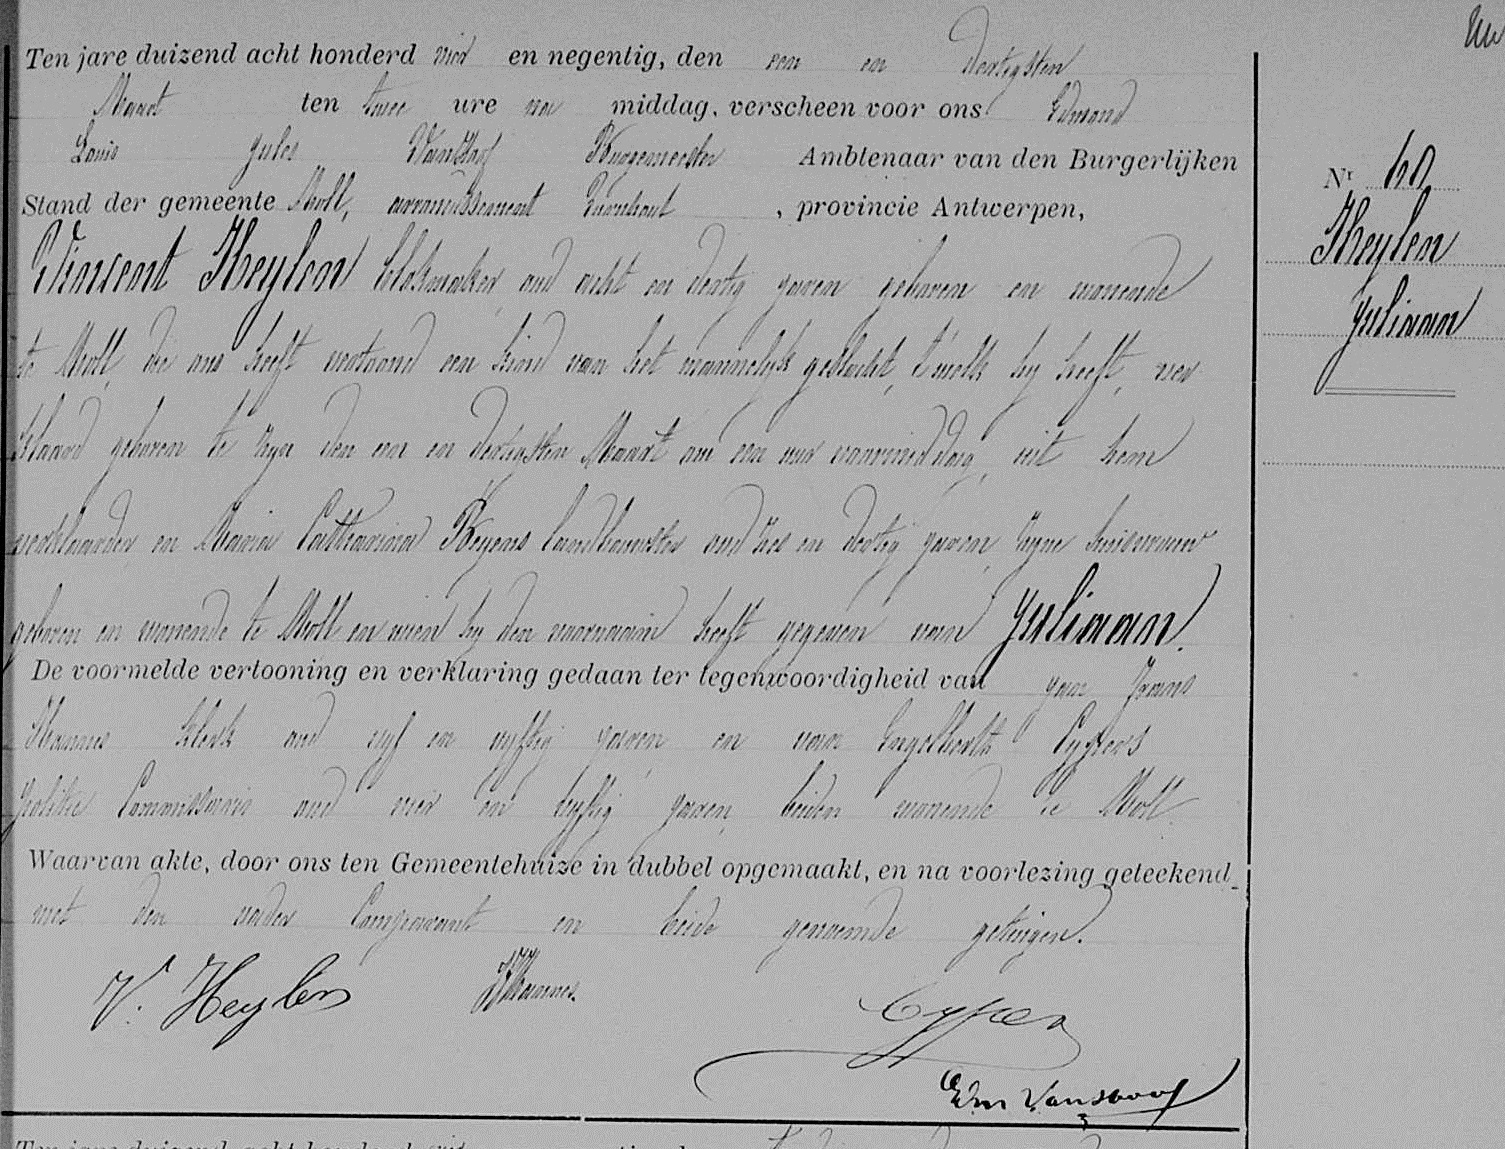 Ten jare duizend acht honderd vier en negentig, den een en dertigsten
Maart ten twee ure na middag, verscheen voor ons Edmond
Louis Jules Burgemeester Ambtenaar van den Burgerlijken
Stand der gemeente Moll, arrondissement Turnhout, provincie Antwerpen,
Vincent Heylen blokmaker, oud acht en dertig jaren geboren en wonende
te Moll, die ons heeft vertoond een kind van het mannelijk geslacht, t'welk hy heeft, ver
klaard geboren te zyn den een en dertigsten Maart om een ure voormiddag, uit hem
verklaarder, en Maria Catharina Beyens landbouwster oud zes en dertig jaren, zyne huisvrouw
geboren en wonende te Moll en wien hy den voornaam heeft gegeven van Juliaan.
De voormelde vertooning en verklaring gedaan ter tegenwoordigheid van Jan Frans
klerk oud vyf en vyftig jaren en van Engelberth
Politie Commissaris oud vier en vyftig jaren, beiden wonende te Moll.
Waarvan akte, door ons ten Gemeentehuize in dubbel opgemaakt, en na voorlezing geteekend
met den vader Comparant en beide genoemde getuigen.
V. Heylen
Edm Vanhoof
Nr 60
Heylen
Juliaan
Ten jare duizend acht honderd vier en negentig, den